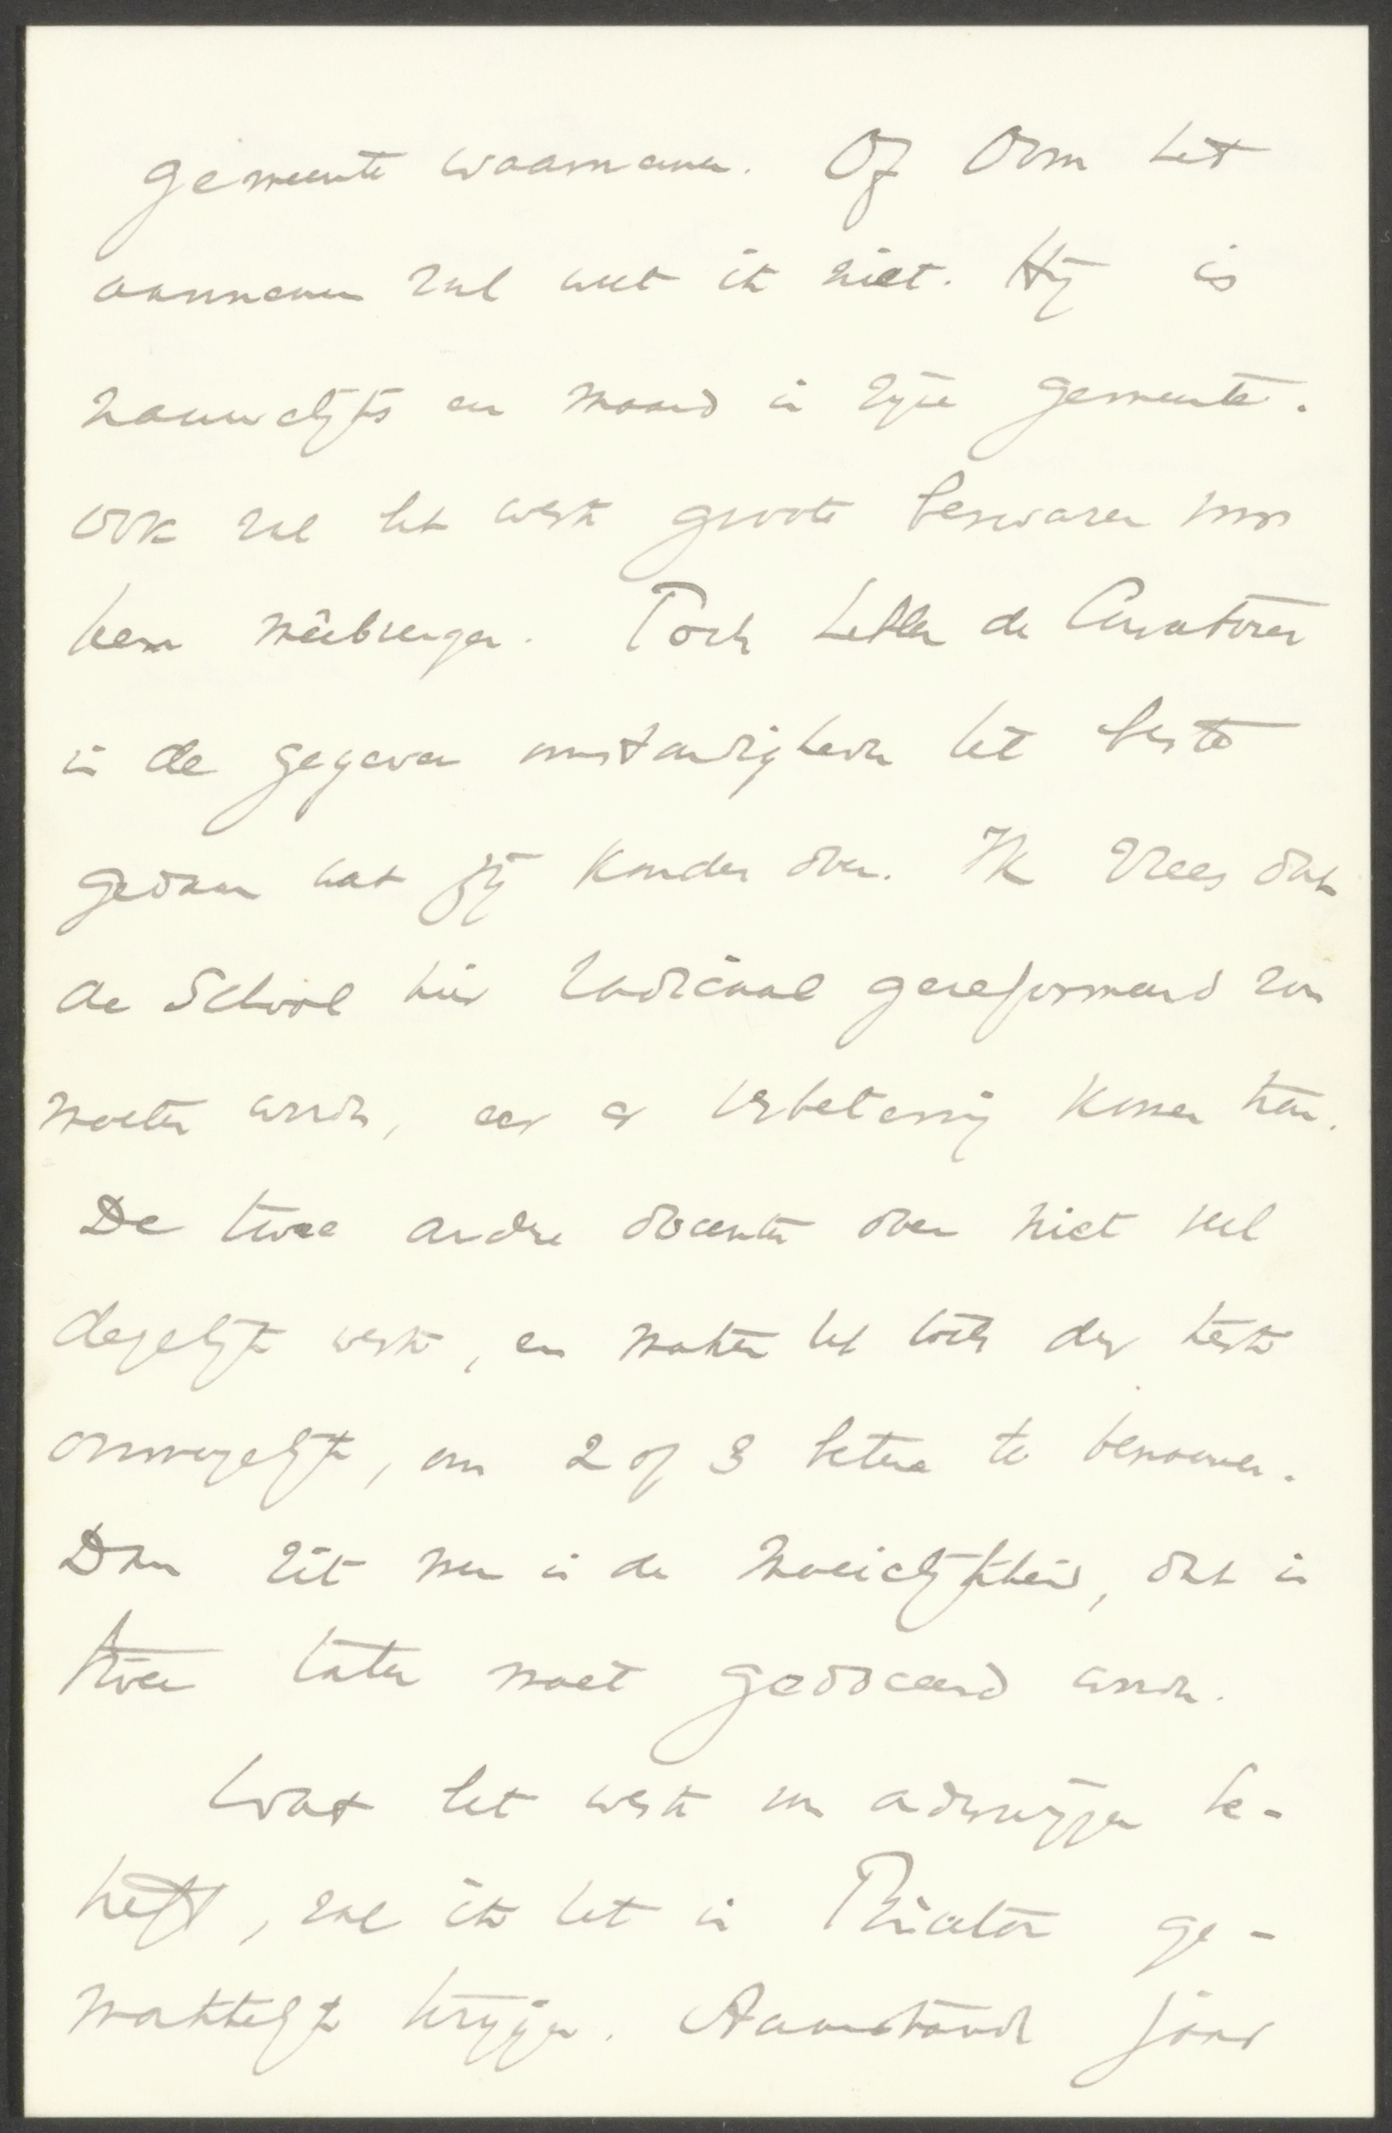 gemeente waarnemen. Of Oom het
aannemen zal weet ik niet. Hij is
nauwelijks een maand in zijne gemeente.
Ook zal het werk groote bezwaren voor
hem meêbrengen. Toch hebben de Curatoren
in de gegeven omstandigheden het beste
gedaan wat zij konden doen. Ik vrees dat
de School hier radicaal gereformeerd zou
moeten worden, eer er verbetering komen kan.
De twee andre docenten doen niet veel
degelijk werk, en maken het toch der kerk
onmogelijk, om 2 of 3 betere te benoemen.
Dan zit men in de moeielijkheid, dat in
twee talen moet gedoceerd worden.
Wat het werk in adviezen be-
treft, zal ik het in Pretoria ge-
makkelijk krijgen. Aanstaande jaar